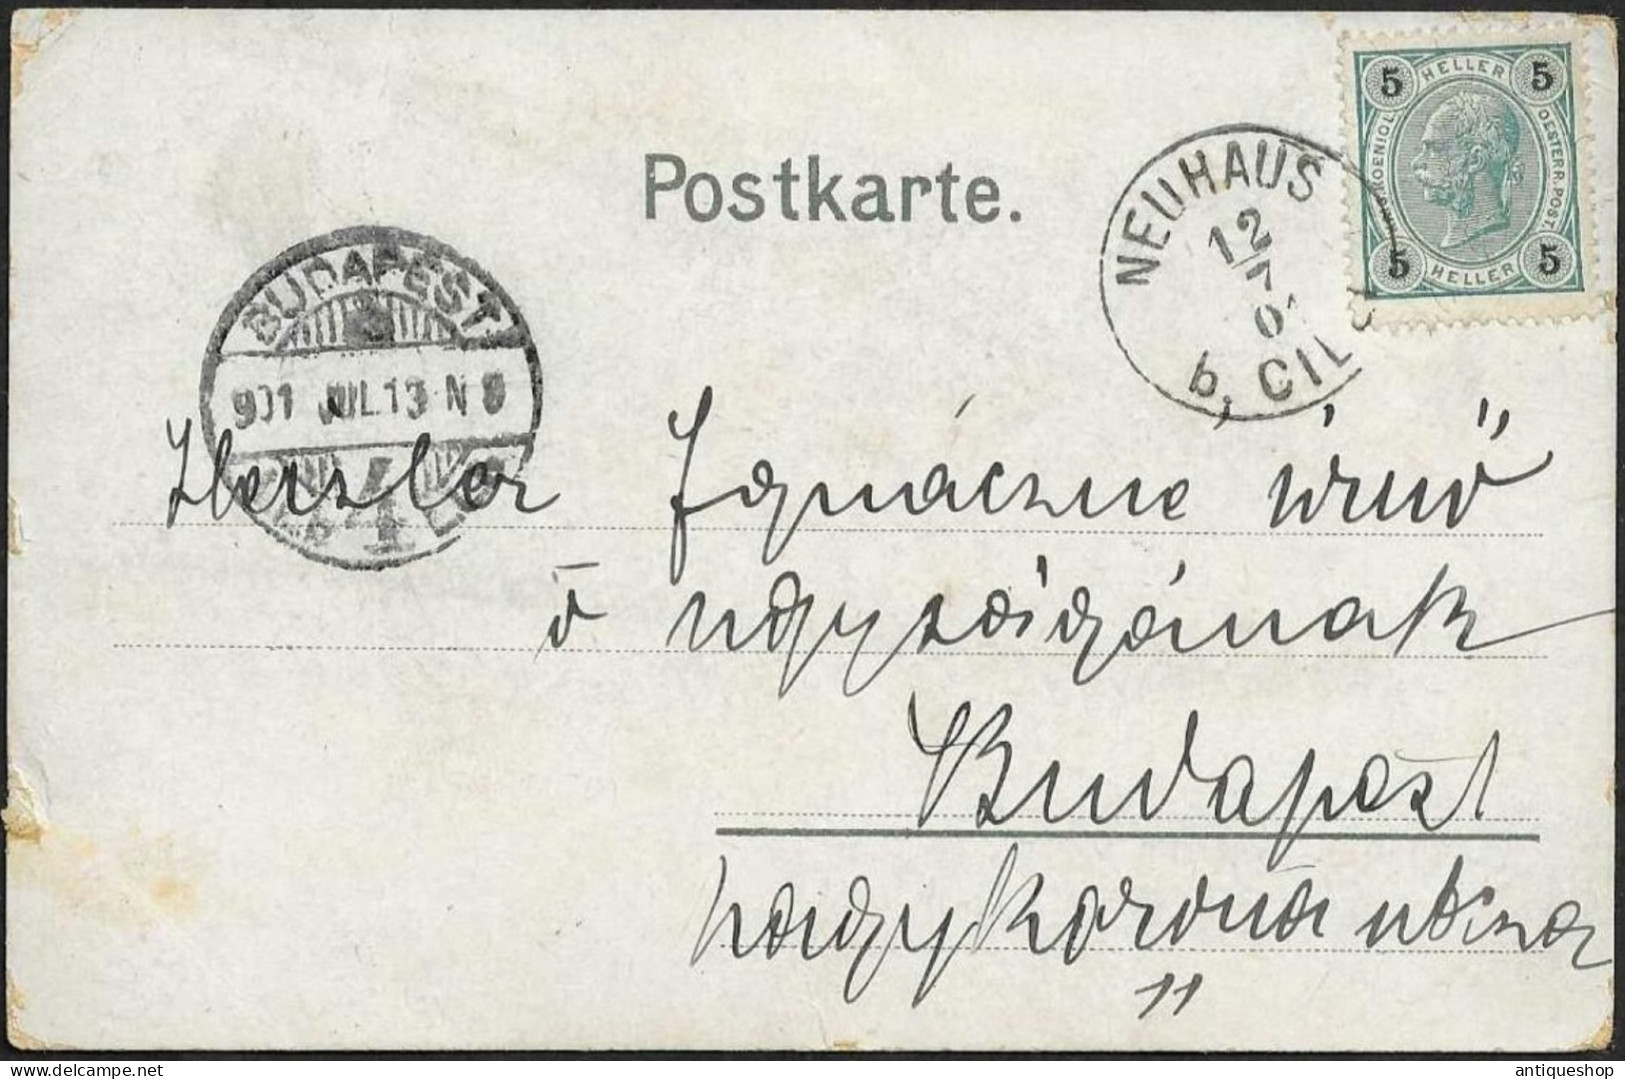 Postkarte.
5 HELLER 5
KOENIGL. OESTERR. POST
5 HELLER 5
NEUHAUS
12
7
0
b. CILLI
BUDAPEST
901 JUL. 13 N 8
4
Herzler Ignáczné úrnő
ő nagyságának
Budapest
nagykorona utcza
11
antiqueshop